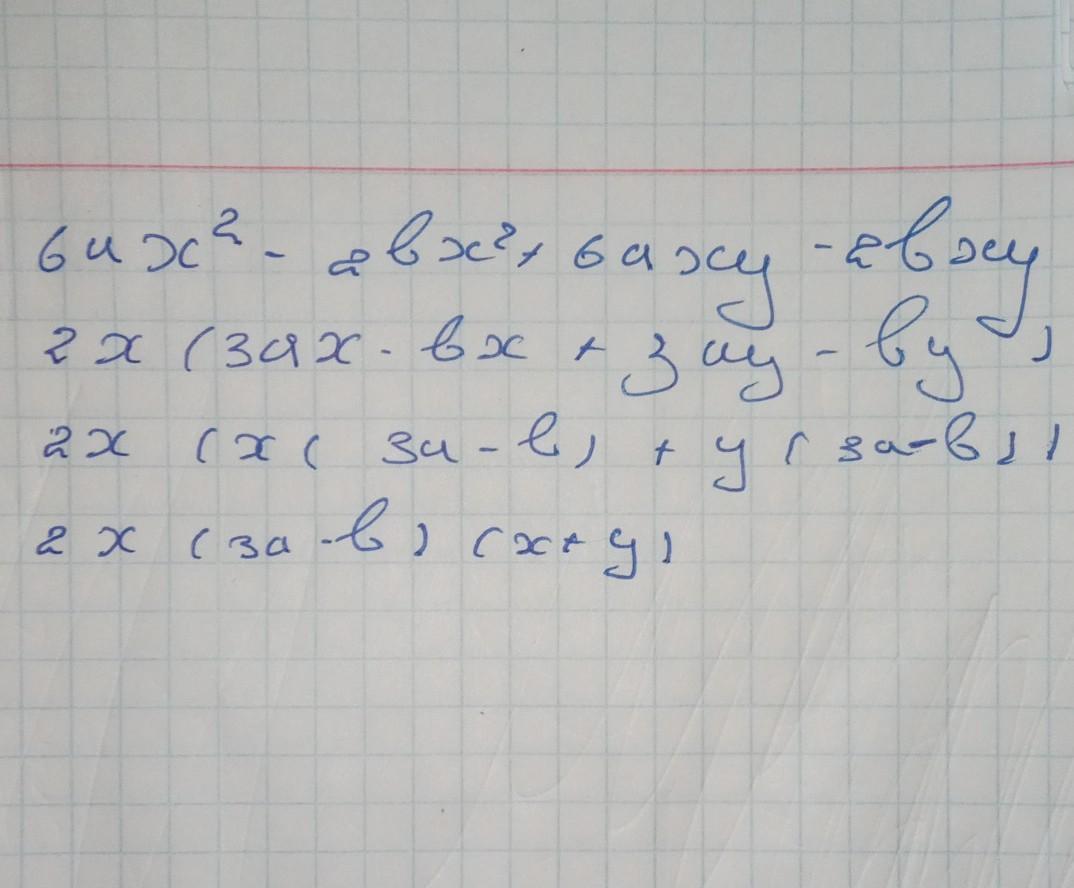 6ax² - 2bx² + 6axy - 2bxy
2x (3ax - bx + 3ay - by)
2x (x(3a - b) + y(3a - b))
2x (3a - b) (x + y)